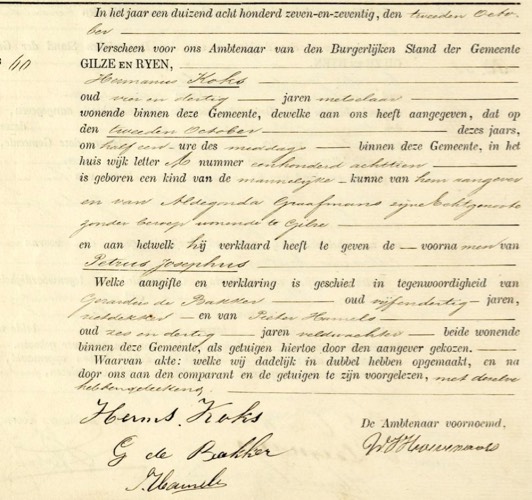 In het jaar een duizend acht honderd zeven-en-zeventig, den tweeden Octo-
ber
Verscheen voor ons Ambtenaar van den Burgerlijken Stand der Gemeente
60
GILZE EN RYEN,
Hermanus Koks
oud vier en dertig jaren metselaar
wonende binnen deze Gemeente, dewelke aan ons heeft aangegeven, dat op
den tweeden October dezes jaars,
om half een ure des middags binnen deze Gemeente, in het
huis wijk letter A nummer eenhonderd achttien
is geboren een kind van de mannelijke kunne van hem aangever
en van Aldegonda Graafmans zijne Echtgenoote
zonder beroep wonende te Gilze
en aan hetwelk hij verklaard heeft te geven de voornamen van
Petrus Josephus
Welke aangifte en verklaring is geschied in tegenwoordigheid van
Gerardus de Bakker oud vijfendertig jaren,
rietdekker en van Peter Hamels
oud zes en dertig jaren veldwachter beide wonende
binnen deze Gemeente, als getuigen hiertoe door den aangever gekozen.
Waarvan akte: welke wij dadelijk in dubbel hebben opgemaakt, en na
door ons aan den comparant en de getuigen te zijn voorgelezen, met dezelve
hebben geteekend,
Herms. Koks
De Ambtenaar voornoemd,
G de Bakker
P. Hamels